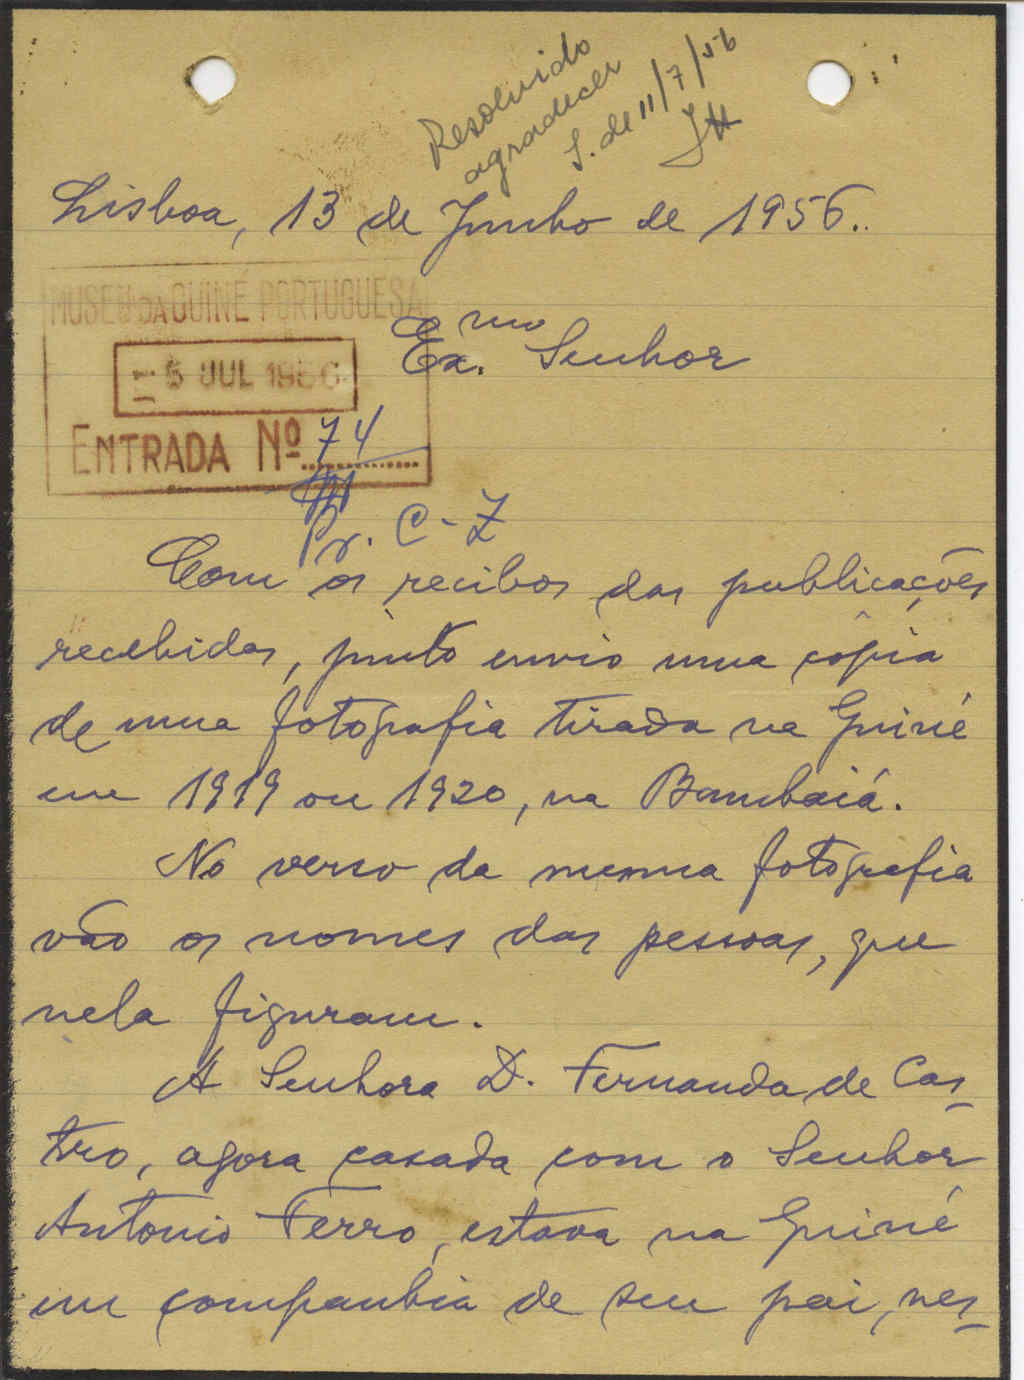 Resolvido
agradecer
S. de 11/7/56
Lisboa, 13 de Junho de 1956.
MUSEU DA GUINÉ PORTUGUESA
5 JUL 1956
ENTRADA Nº 74
Ex.mo Senhor
Pr. C-Z
Com os recibos das publicações
recebidas, junto envio uma cópia
de uma fotografia tirada na Guiné
em 1919 ou 1920, na Bambaiá.
No verso da mesma fotografia
vão os nomes das pessoas, que
nela figuram.
A Senhora D. Fernanda de Cas-
tro, agora casada com o Senhor
Antonio Ferro, estava na Guiné
em companhia de seu pai, nes-